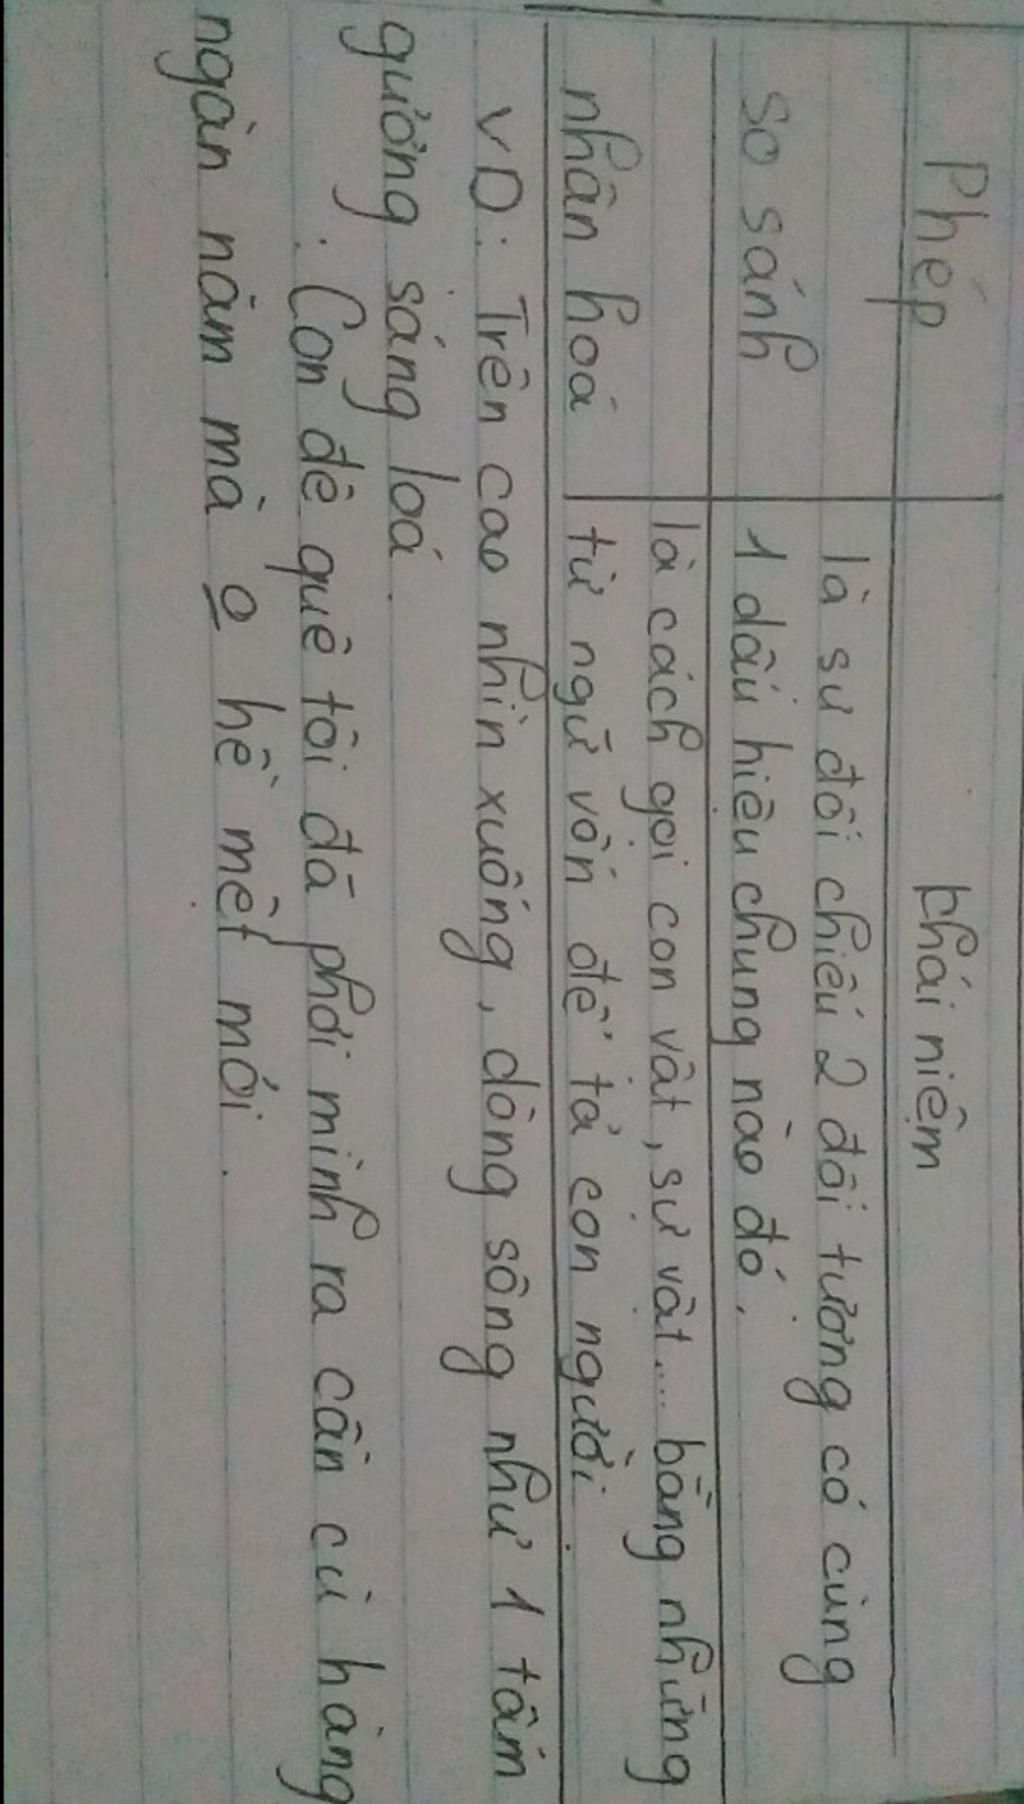 Phép khái niệm
là sự đối chiếu 2 đối tượng có cùng
so sánh 1 dấu hiệu chung nào đó.
là cách gọi con vật, sự vật... bằng những
nhân hoá từ ngữ vốn để tả con người.
VD: Trên cao nhìn xuống, dòng sông như 1 tấm
gương sáng loá.
: Con đê quê tôi đã phơi mình ra cần cù hàng
ngàn năm mà o hề mệt mỏi.